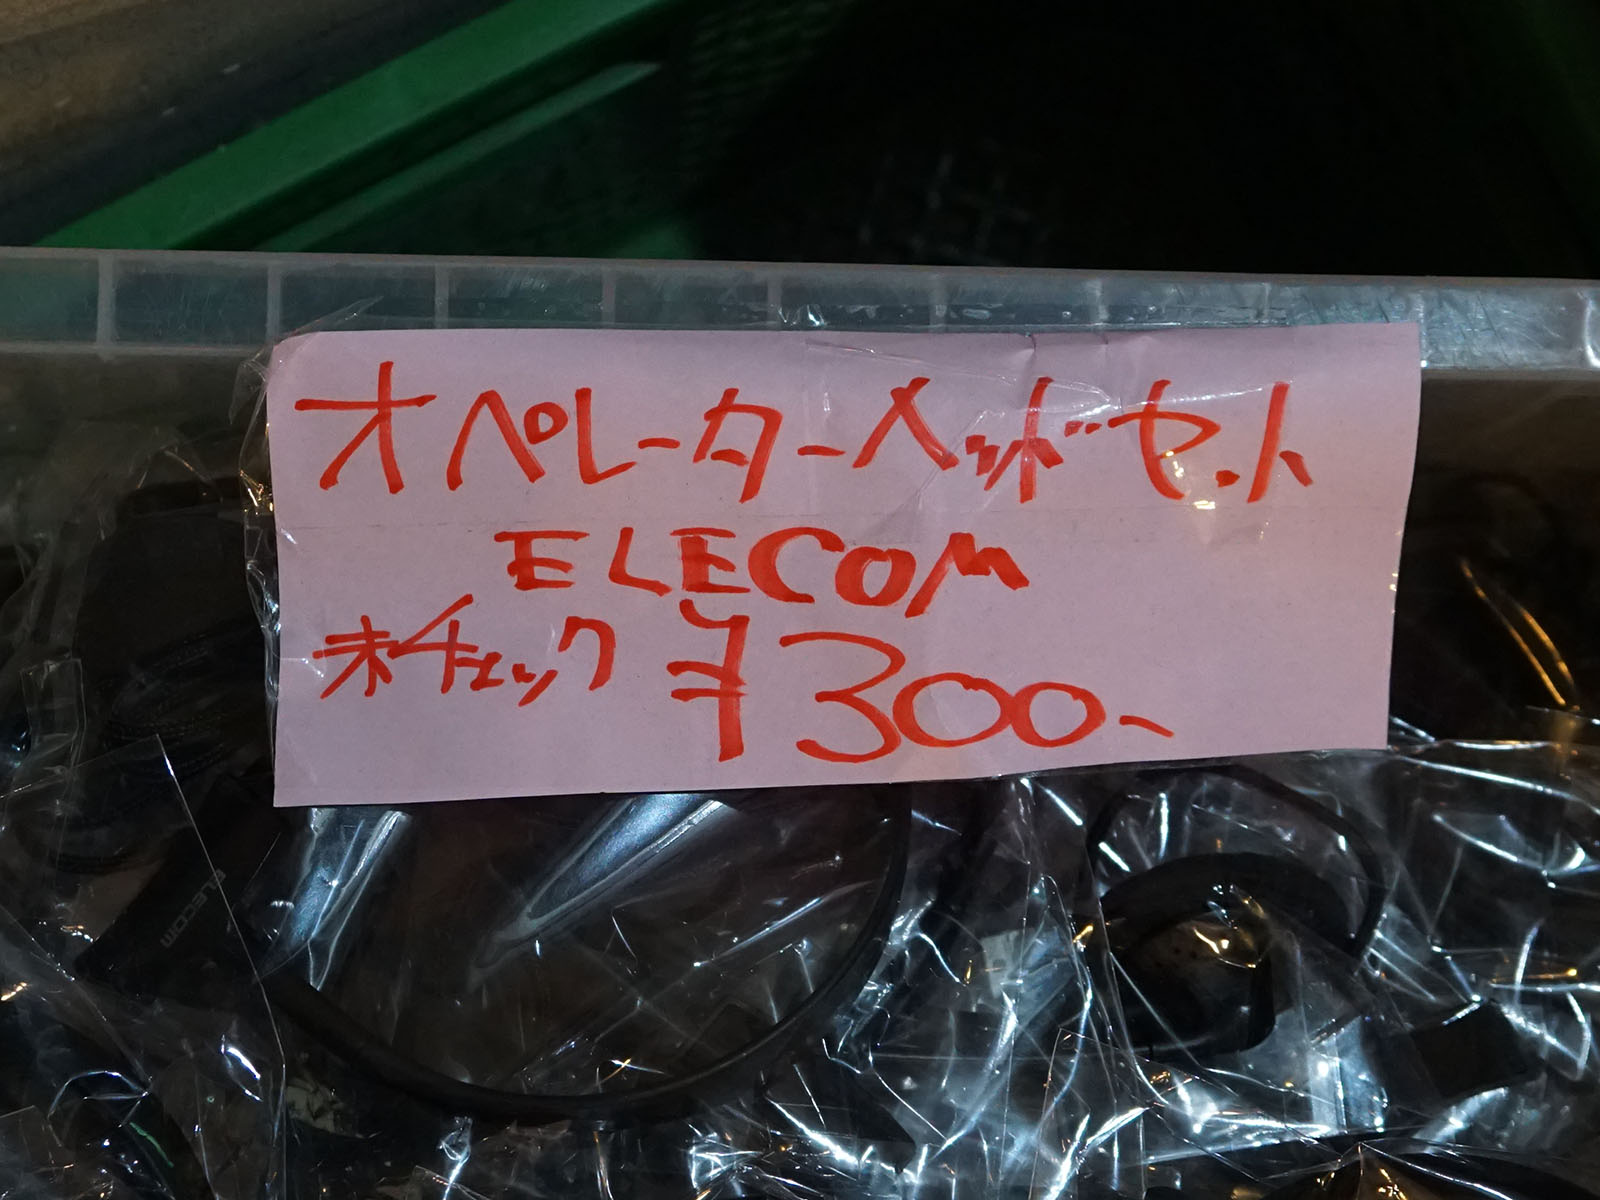 オペレーターヘッドセット
ELECOM
未チェック ¥300-
ELECOM